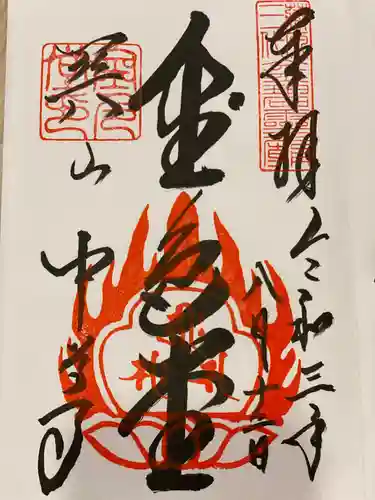 奉拝
令和三年
八月十二日
金色堂
関山
中尊寺